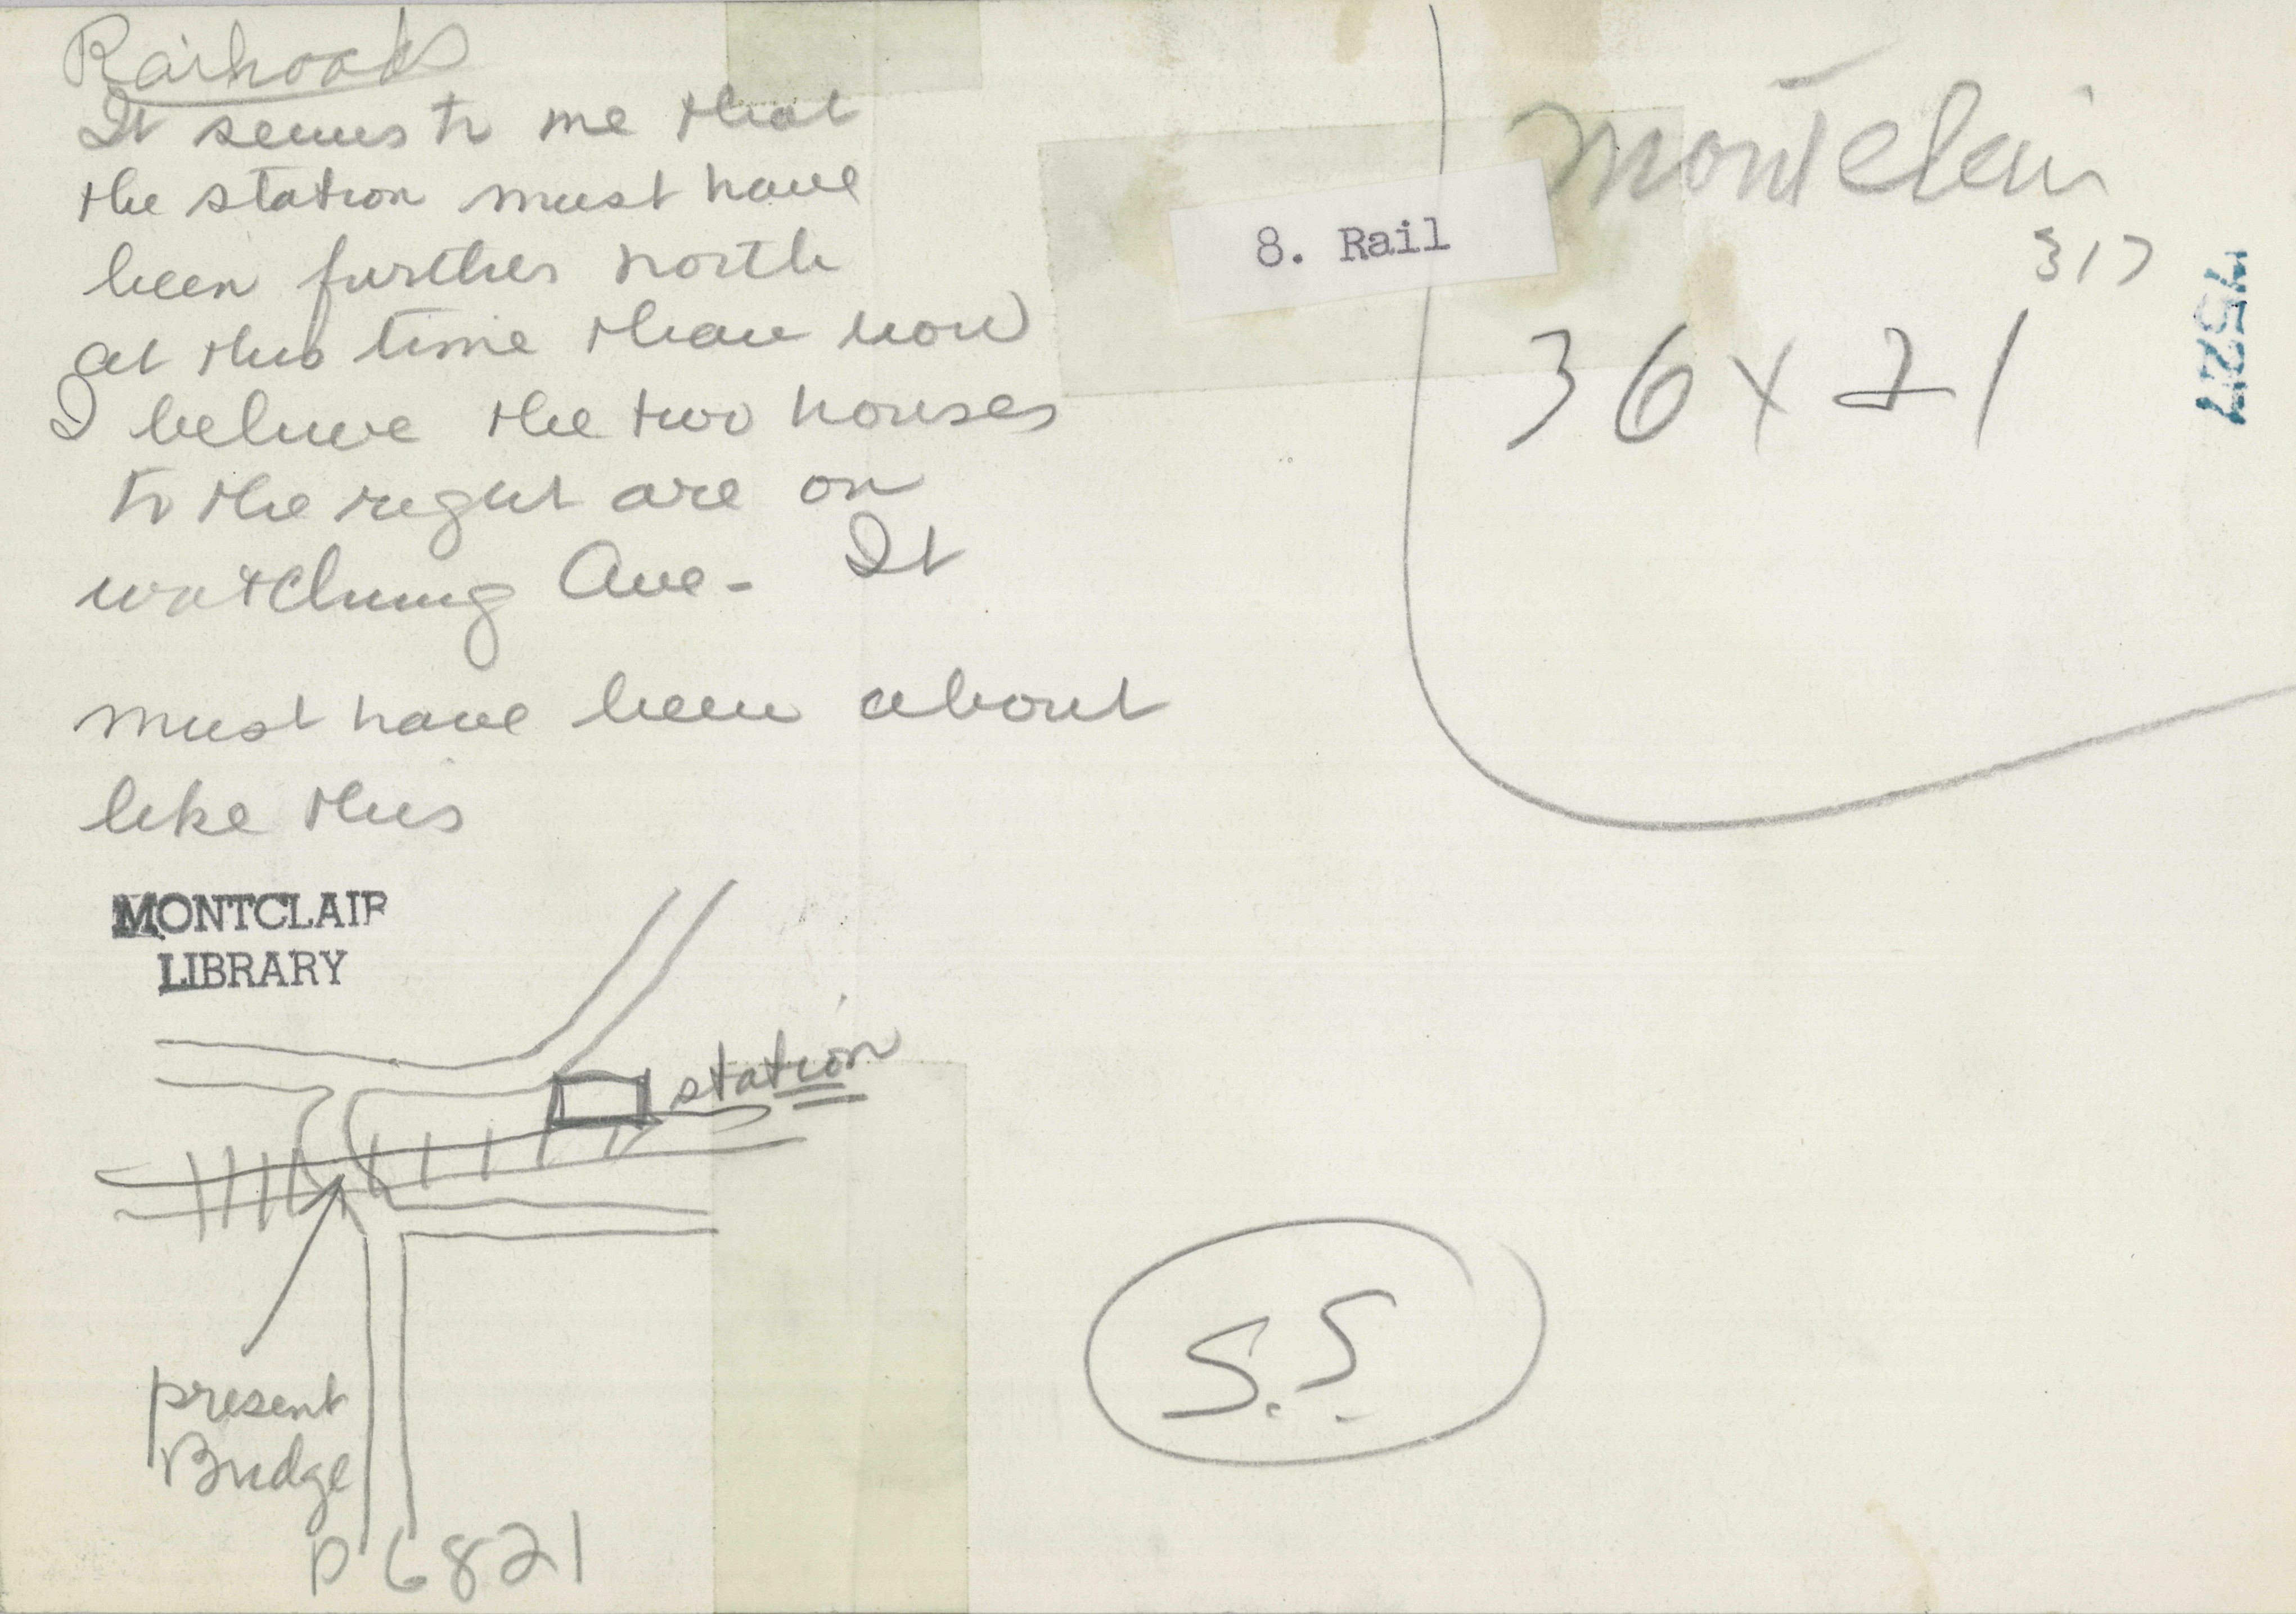 Railroads
It seems to me that
the station must have
been further north
at this time than now
I believe the two houses
to the right are on
watchung Ave - It
must have been about
like this
MONTCLAIR
LIBRARY
station
present
Bridge
P6821
8. Rail
Montclair
317
36 x 21
S.S.